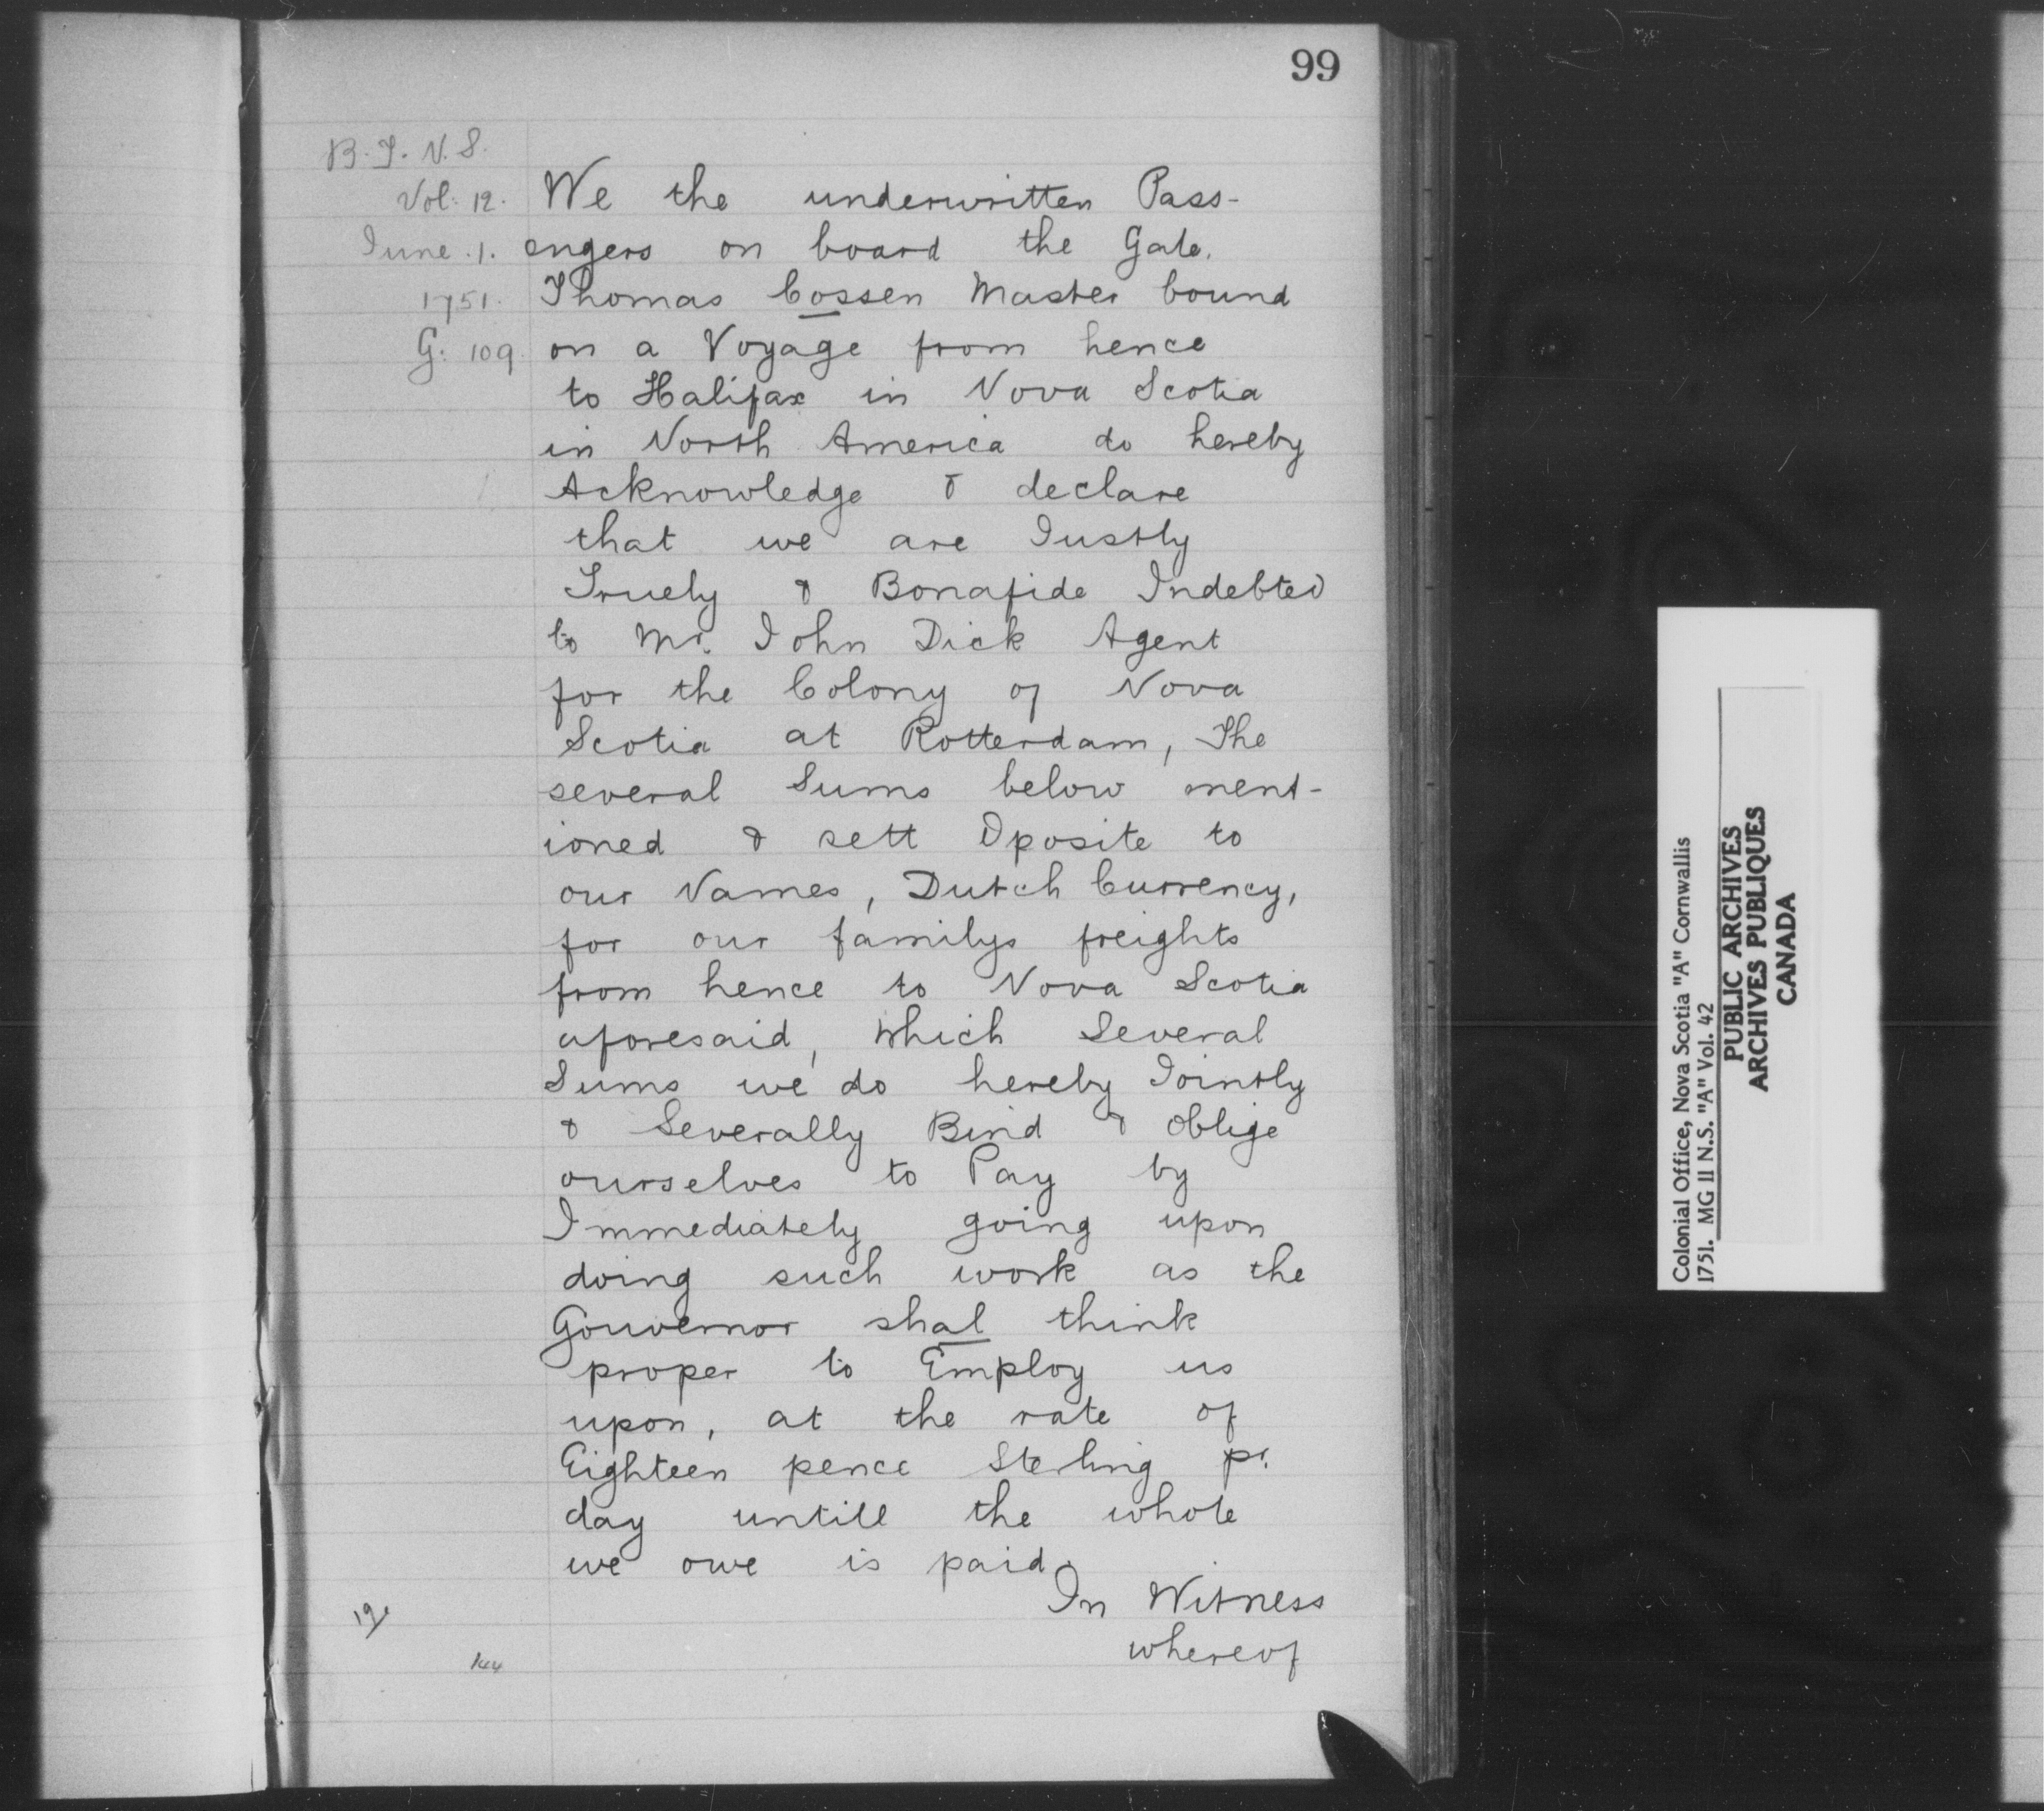 99
B. T. N. S.
Vol: 12.
June . 1.
1751.
G: 109.
We the underwritten Pass-
engers on board the Gale.
Thomas Cossen Master bound
on a Voyage from hence
to Halifax in Nova Scotia
in North America do hereby
Acknowledge & declare
that we are Justly
Truely & Bonafide Indebted
to Mr. John Dick Agent
for the Colony of Nova
Scotia at Rotterdam, The
several Sums below ment-
ioned & sett Oposite to
our Names, Dutch Currency,
for our familys freights
from hence to Nova Scotia
aforesaid, which Several
Sums we do hereby Jointly
& Severally Bind & oblige
ourselves to Pay by
Immediately going upon
doing such work as the
Gouvernor shal think
proper to Employ us
upon, at the rate of
Eighteen pence Sterling pr.
day untill the whole
we owe is paid.
In Witness
whereof
Colonial Office, Nova Scotia "A" Cornwallis
1751. MG II N.S. "A" Vol. 42
PUBLIC ARCHIVES
ARCHIVES PUBLIQUES
CANADA